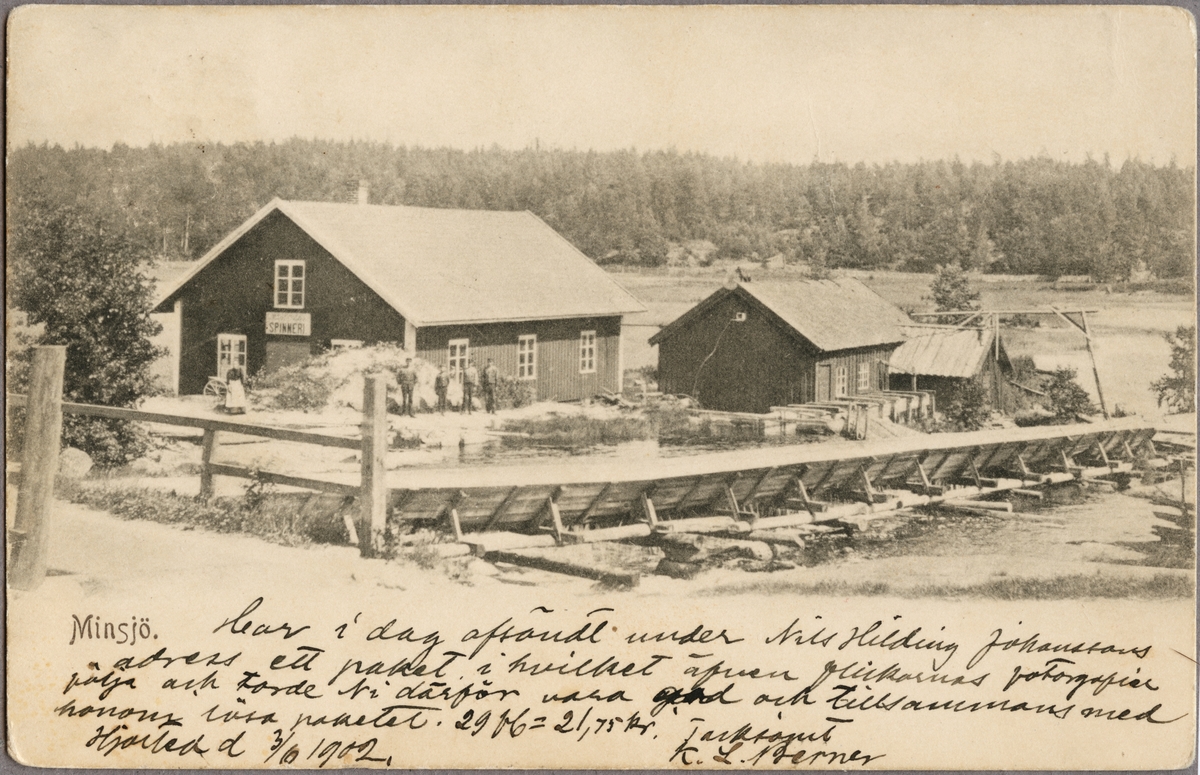 SPINNERI
Minsjö.
Har i dag afsändt under Nils Hilding Johanssons
adress ett paket i hvilket äfven flickornas fotografier
följa och torde Ni därför vara god och tillsammans med
honom lösa paketet. 29 = 21,75 kr.
Hjorted d 3/6 1902.
Tacksamt
K. L. Berner